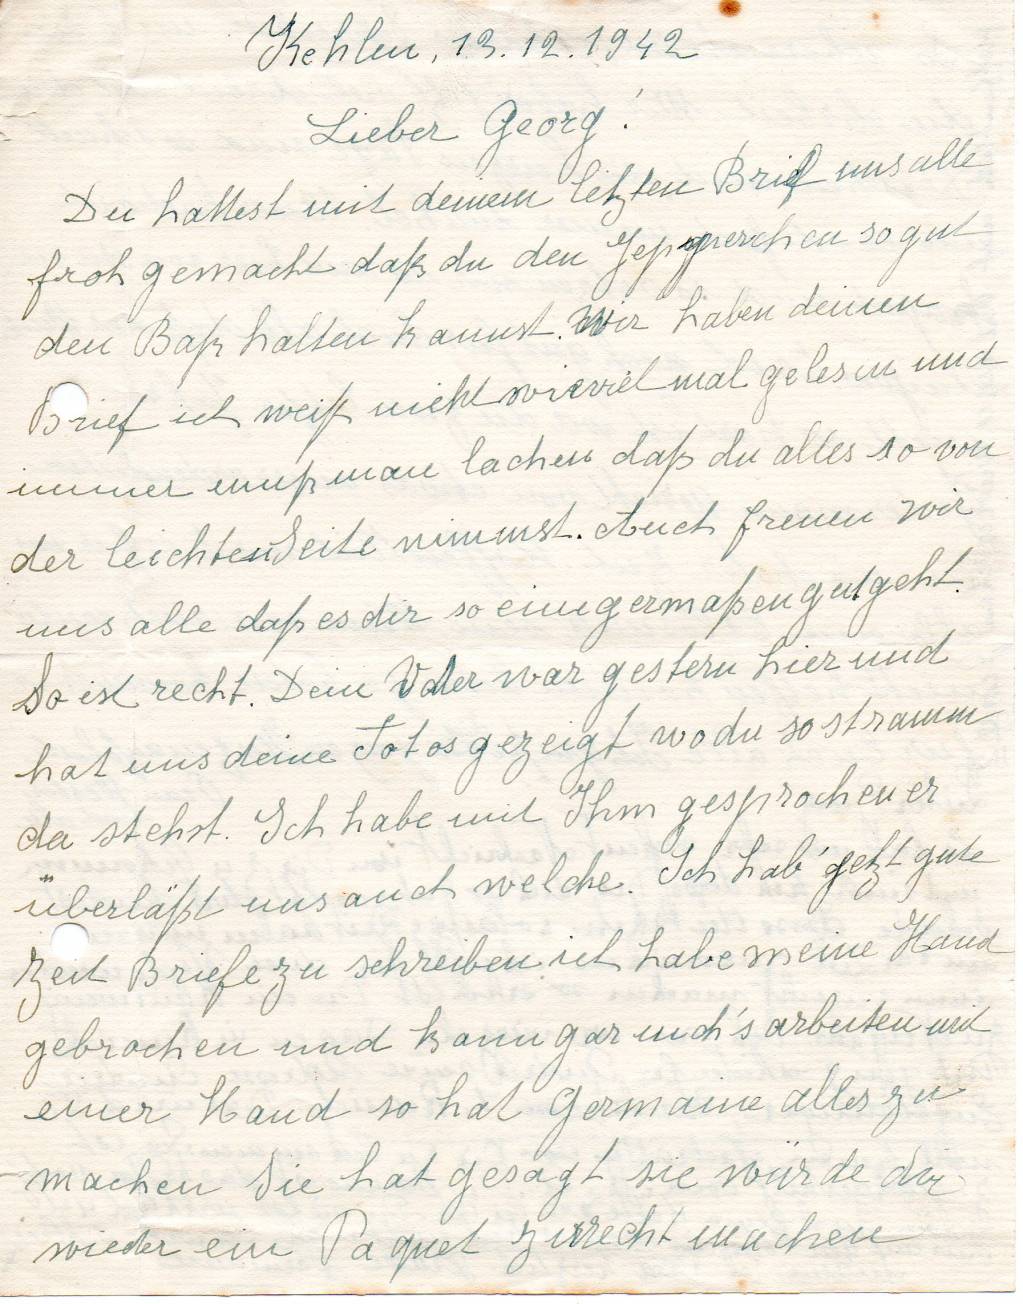 Kehlen, 13.12.1942
Lieber Georg!
Du hattest mit deinem letzten Brief uns alle
froh gemacht daß du den so gut
den Baß halten kannst. Wir haben deinen
Brief ich weiß nicht wieviel mal gelesen und
immer muß man lachen daß du alles so von
der leichten Seite nimmst. Auch freuen wir
uns alle daß es dir so einigermaßen gut geht.
So ist recht. Dein Vater war gestern hier und
hat uns deine Fotos gezeigt wo du so stramm
da stehst. Ich habe mit Ihm gesprochen er
überläßt uns auch welche. Ich hab' jetzt gute
Zeit Briefe zu schreiben ich habe meine Hand
gebrochen und kann gar nich's arbeiten mit
einer Hand so hat Germaine alles zu
machen Sie hat gesagt sie würde dir
wieder ein Paquet zurecht machen